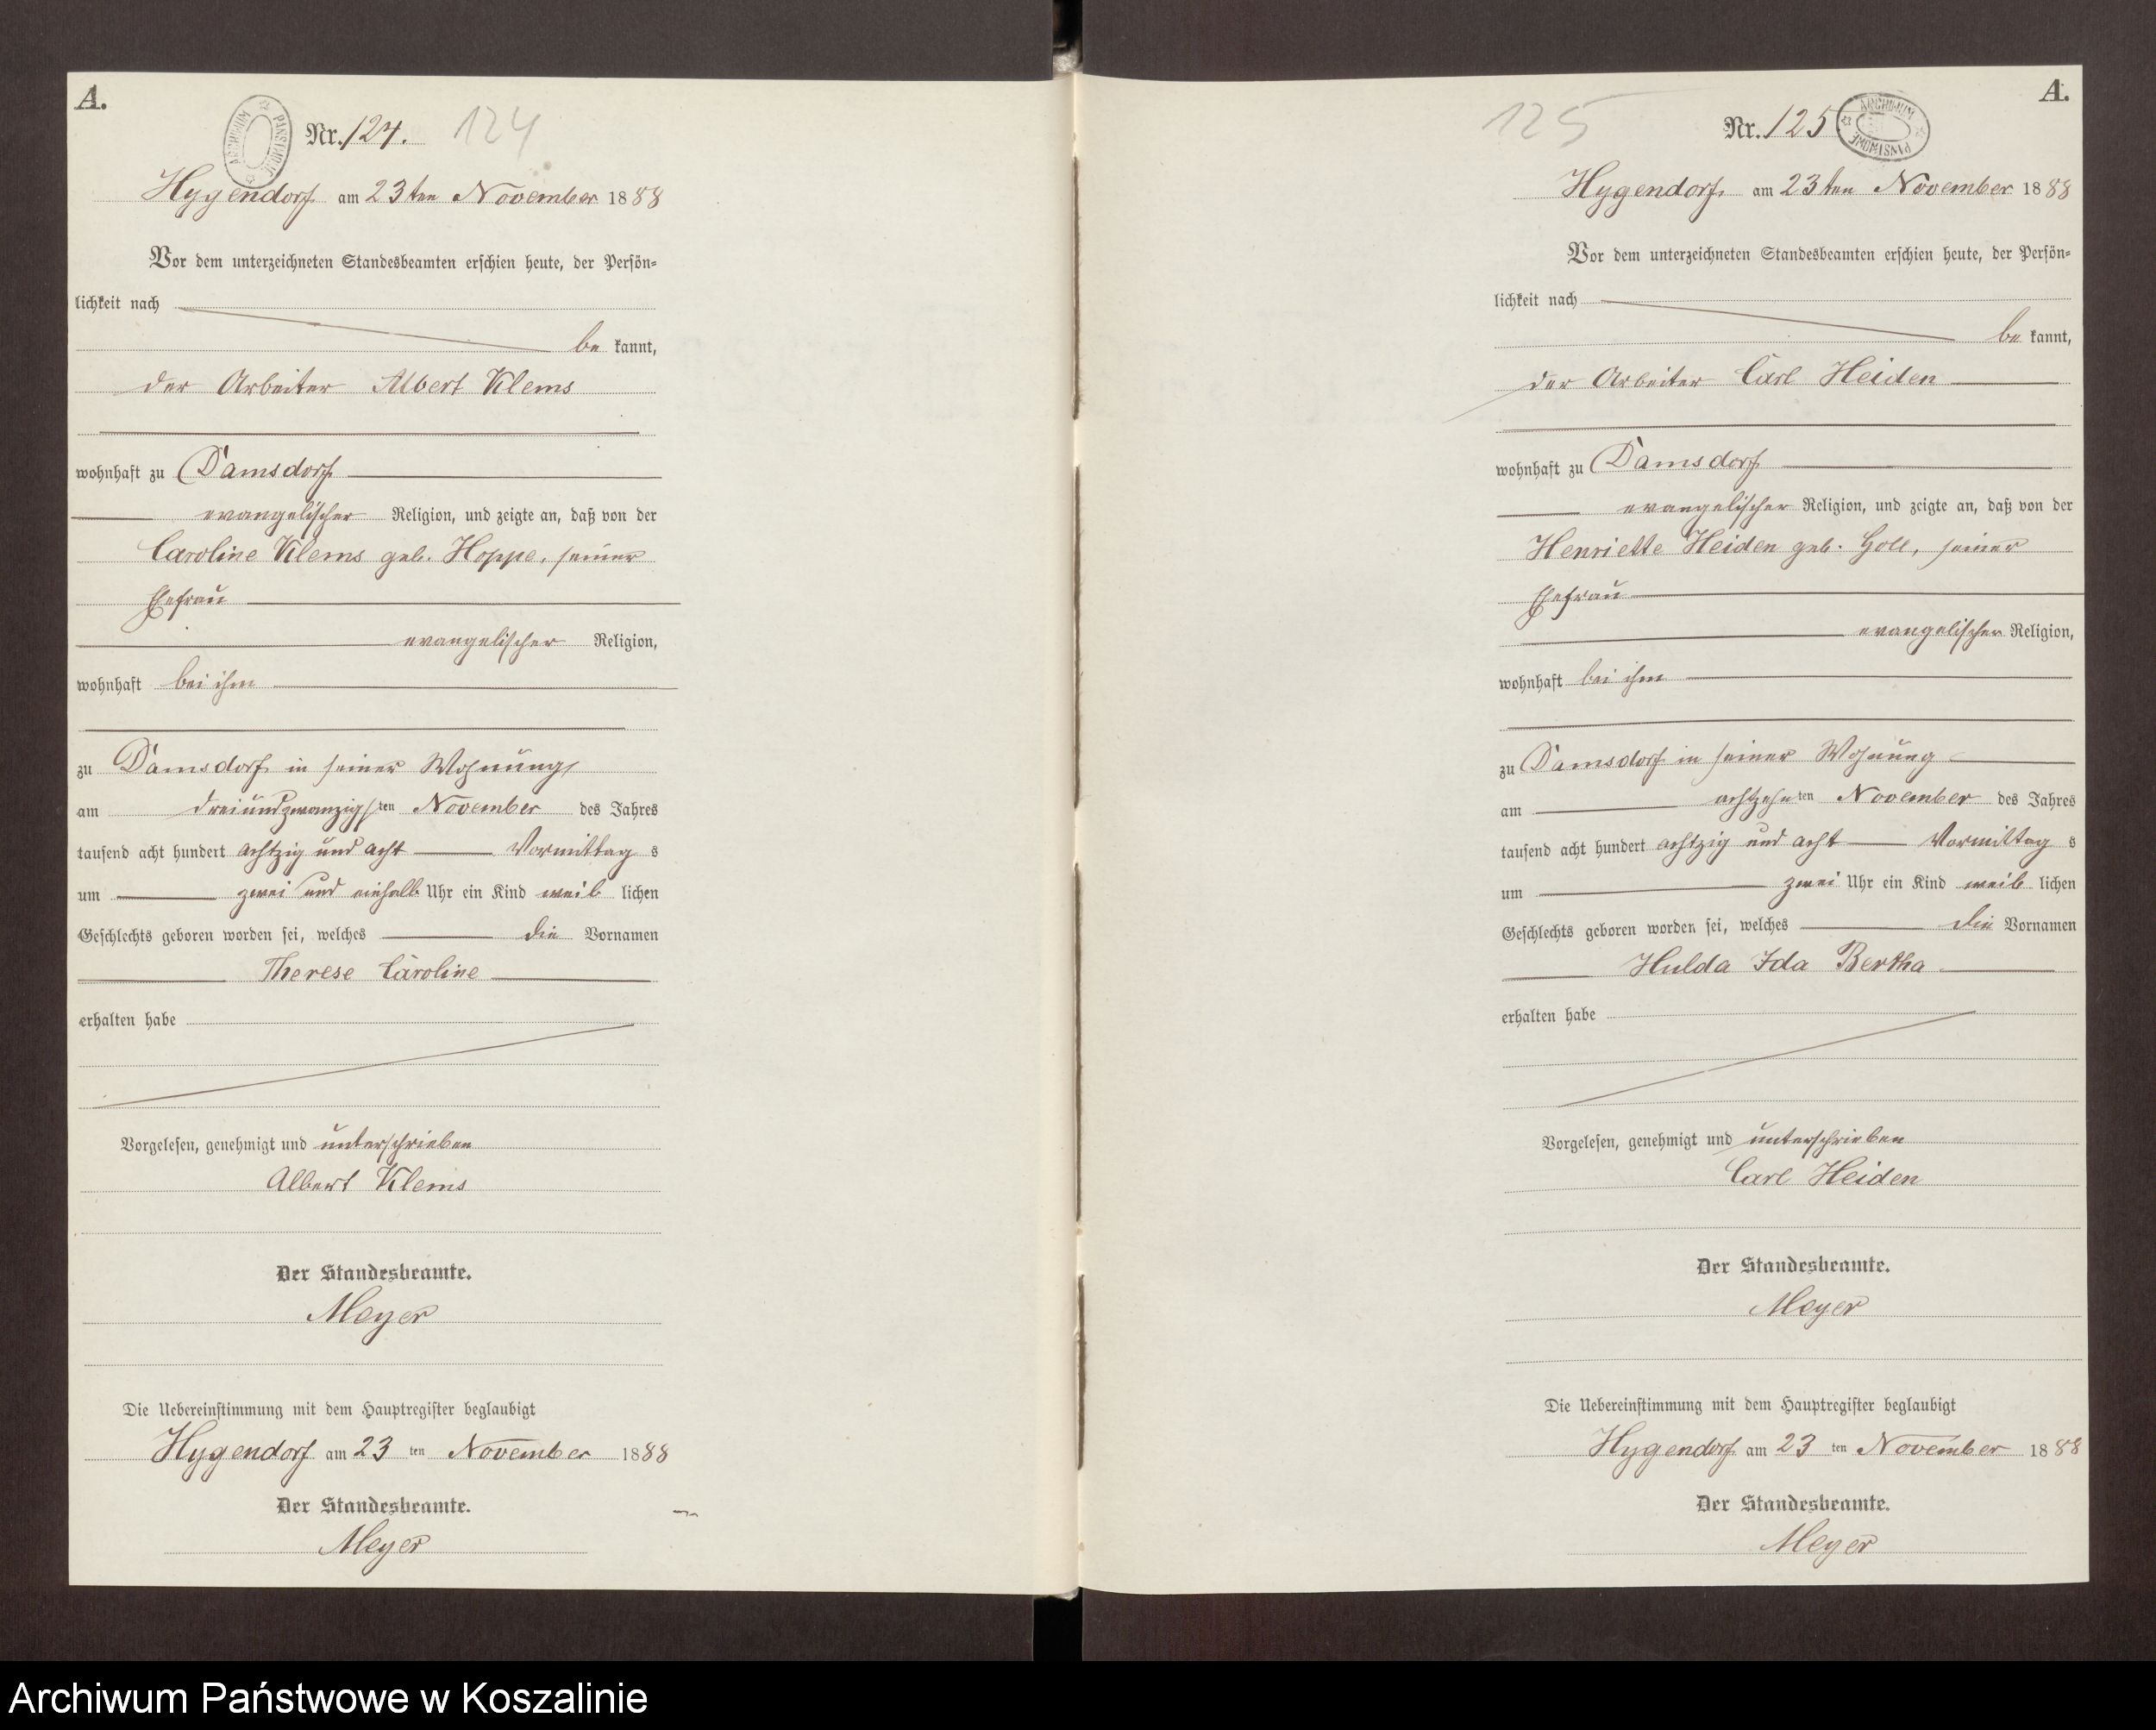 A.
ARCHIWUM PAŃSTWOWE
Nr. 124. 124
Hygendorf am 23ten November 1888
Vor dem unterzeichneten Standesbeamten erschien heute, der Persön-
lichkeit nach
be kannt,
der Arbeiter Albert Klems
wohnhaft zu Damsdorf
evangelischer Religion, und zeigte an, daß von der
Caroline Klems geb. Hoppe, seiner
Ehefrau
evangelischer Religion,
wohnhaft bei ihm
zu Damsdorf in seiner Wohnung,
am dreiundzwanzigsten November des Jahres
tausend acht hundert achtzig und acht Vormittag s
um zwei und einhalb Uhr ein Kind weib lichen
Geschlechts geboren worden sei, welches die Vornamen
Therese Caroline
erhalten habe
Vorgelesen, genehmigt und unterschrieben
Albert Klems
Der Standesbeamte.
Meyer
Die Uebereinstimmung mit dem Hauptregister beglaubigt
Hygendorf am 23 ten November 1888
Der Standesbeamte.
Meyer
A.
125 Nr. 125
ARCHIWUM PAŃSTWOWE
Hygendorf am 23ten November 1888
Vor dem unterzeichneten Standesbeamten erschien heute, der Persön-
lichkeit nach
be kannt,
der Arbeiter Carl Heiden
wohnhaft zu Damsdorf
evangelischer Religion, und zeigte an, daß von der
Henriette Heiden geb. Goll, seiner
Ehefrau
evangelischer Religion,
wohnhaft bei ihm
zu Damsdorf in seiner Wohnung
am achtzehnten November des Jahres
tausend acht hundert achtzig und acht Vormittag s
um zwei Uhr ein Kind weib lichen
Geschlechts geboren worden sei, welches die Vornamen
Hulda Ida Bertha
erhalten habe
Vorgelesen, genehmigt und unterschrieben
Carl Heiden
Der Standesbeamte.
Meyer
Die Uebereinstimmung mit dem Hauptregister beglaubigt
Hygendorf am 23 ten November 1888
Der Standesbeamte.
Meyer
Archiwum Państwowe w Koszalinie